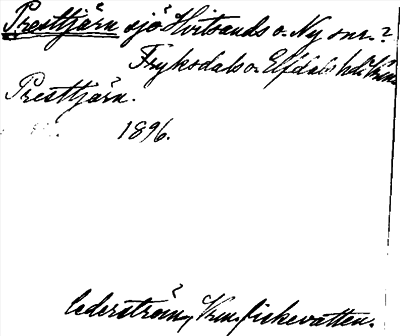 Presttjärn sjö Hvitsands o. Ny snr.?
Fryksdals o. Elfdals hd
Presttjärn.
1896.
Cederström, Vrm. fiskevatten.